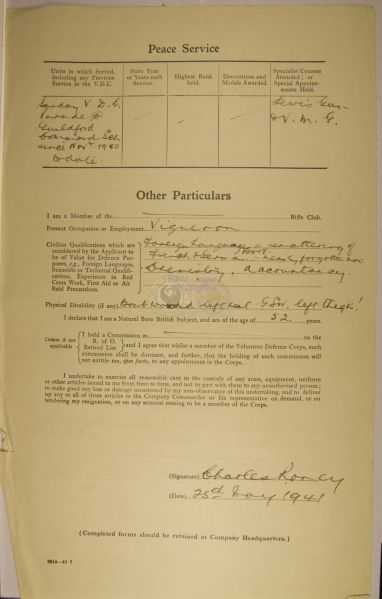 Peace Service
Units in which Served, including any Previous Service in the V.D.C.
State Year or Years such Service.
Highest Rank held.
Decorations and Medals Awarded.
Specialist Courses Attended; or Special Appointments Held.
Sunday V. D. C.
Parade @
Guildford
Command Sch
since Novr 1940
to date.
Lewis Gun
& V. M. G.
Other Particulars
I am a Member of the Rifle Club.
Present Occupation or Employment. Vigneron
Civilian Qualifications which are
considered by the Applicant to
be of Value for Defence Purposes,
e.g., Foreign Languages,
Scientific or Technical Qualifications,
Experience in Red
Cross Work, First Aid or Air
Raid Precautions.
Foreign Language a smattering of
French German - nearly forgotten
Chemistry, Accountancy.
Physical Disability (if any) Bomb wound left heel G.S.W. left thigh!
I declare that I am a Natural Born British Subject, and am of the age of 52 years.
Delete if not applicable
I hold a Commission as on the
R. of O.
Retired List
and I agree that whilst a member of the Volunteer Defence Corps, such
commission shall be dormant, and further, that the holding of such commission will
not entitle me, ipso facto, to any appointment in the Corps.
I undertake to exercise all reasonable care in the custody of any arms, equipment, uniform
or other articles issued to me from time to time, and not to part with them to any unauthorised person;
to make good any loss or damage occasioned by my non-observance of this undertaking, and to deliver
up any or all of those articles to the Company Commander or his representative on demand, or on
tendering my resignation, or on any account ceasing to be a member of the Corps.
(Signature) Charles Roney
(Date) 25th May 1941
(Completed forms should be retained at Company Headquarters.)